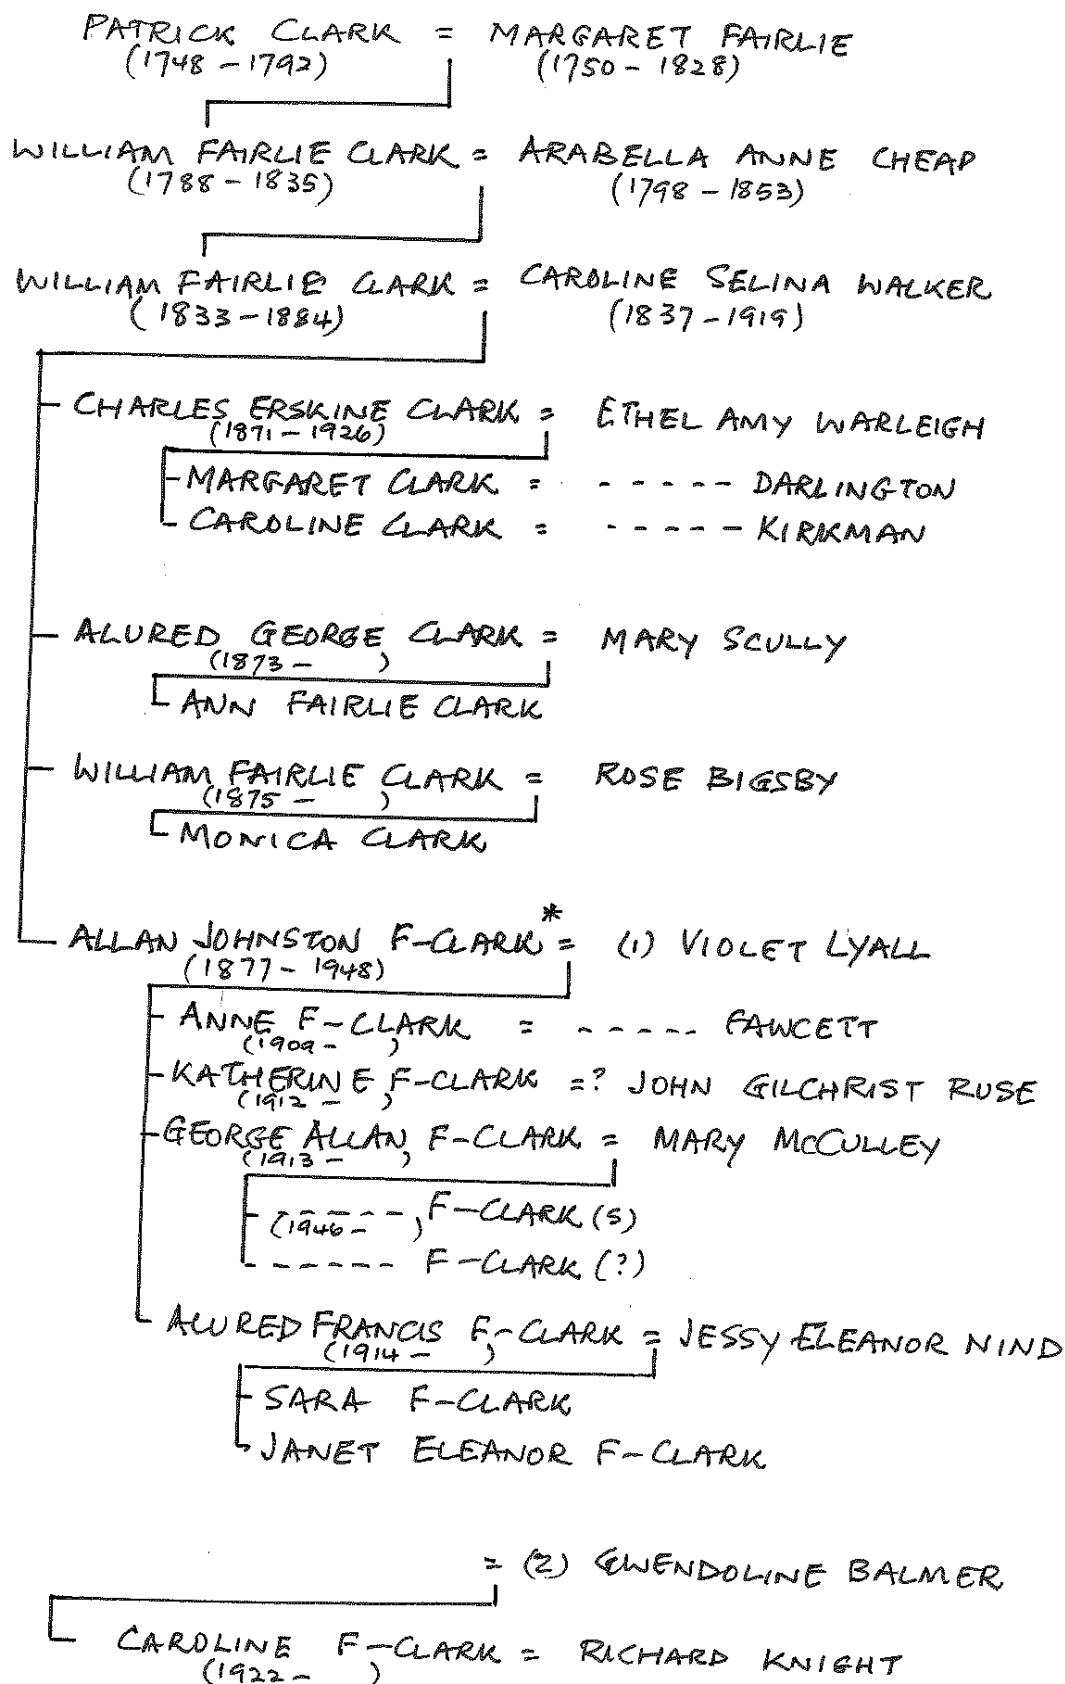 PATRICK CLARK = MARGARET FAIRLIE
(1748 - 1792) (1750 - 1828)
WILLIAM FAIRLIE CLARK = ARABELLA ANNE CHEAP
(1788 - 1835) (1798 - 1853)
WILLIAM FAIRLIE CLARK = CAROLINE SELINA WALKER
(1833 - 1884) (1837 - 1919)
CHARLES ERSKINE CLARK = ETHEL AMY WARLEIGH
(1871 - 1926)
MARGARET CLARK = ----- DARLINGTON
CAROLINE CLARK = ----- KIRKMAN
ALURED GEORGE CLARK = MARY SCULLY
(1873 - )
ANN FAIRLIE CLARK
WILLIAM FAIRLIE CLARK = ROSE BIGSBY
(1875 - )
MONICA CLARK
ALLAN JOHNSTON F-CLARK* = (1) VIOLET LYALL
(1877 - 1948)
ANNE F-CLARK = ----- FAWCETT
(1909 - )
KATHERINE F-CLARK =? JOHN GILCHRIST RUSE
(1912 - )
GEORGE ALLAN F-CLARK = MARY McCULLEY
(1913 - )
----- F-CLARK (S)
(1946 - )
------ F-CLARK (?)
ALURED FRANCIS F-CLARK = JESSY ELEANOR NIND
(1914 - )
SARA F-CLARK
JANET ELEANOR F-CLARK
= (2) GWENDOLINE BALMER
CAROLINE F-CLARK = RICHARD KNIGHT
(1922 - )